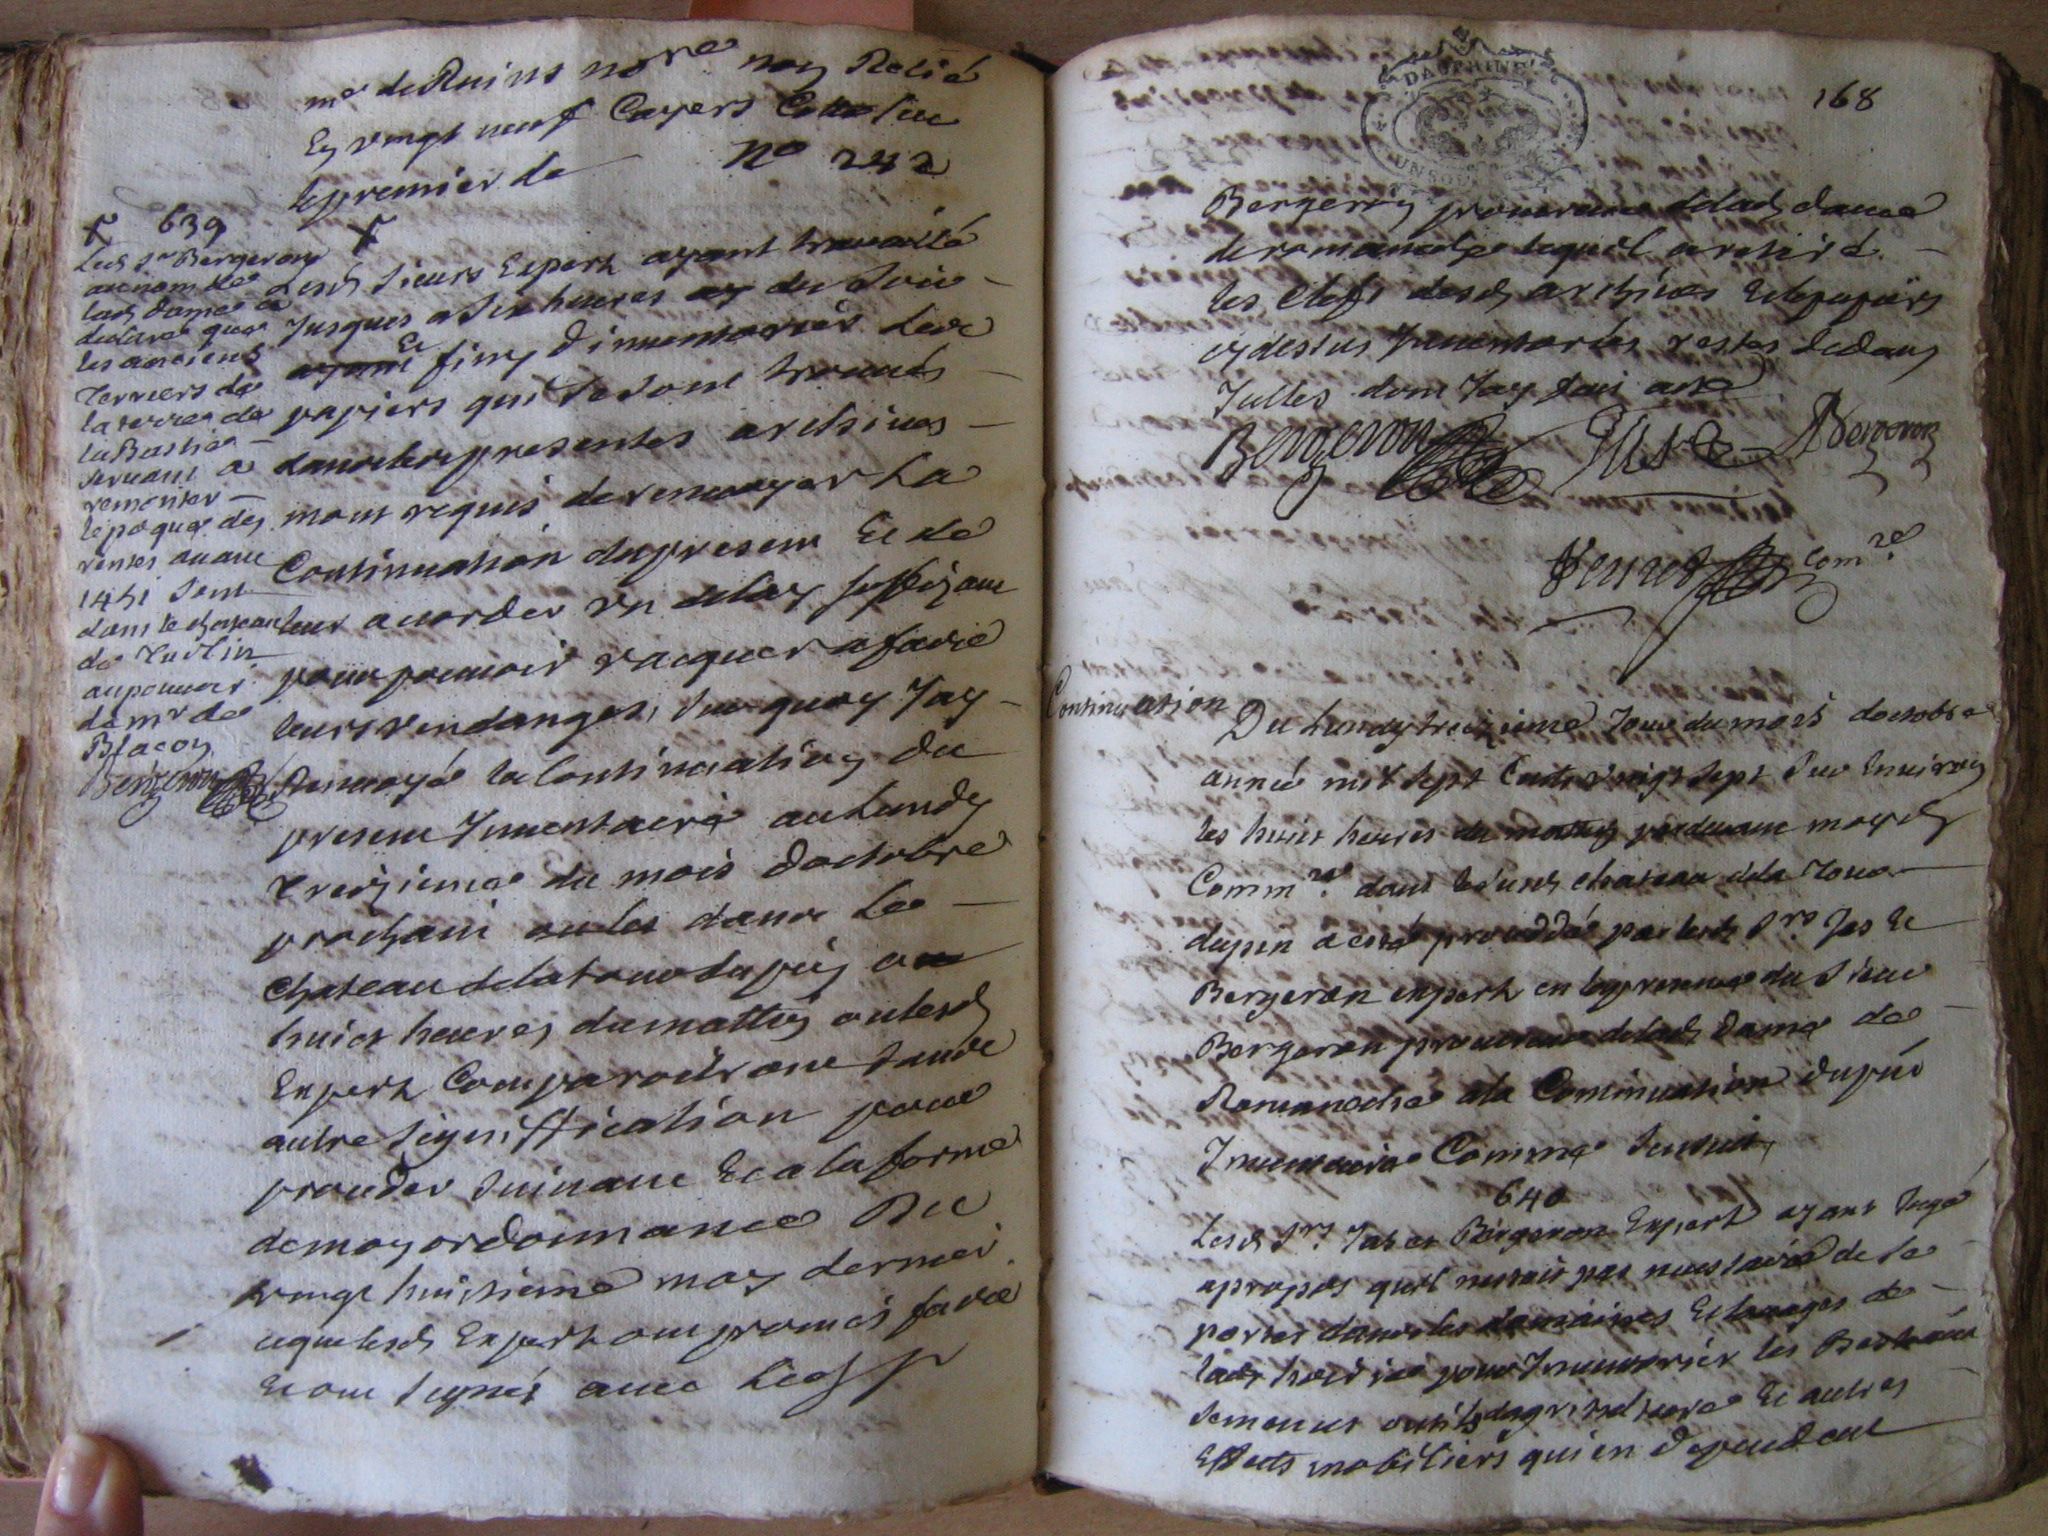 mre de Ruins nore non Relié
En vingt neuf Cayers Cotté sur
le premier de n° 242
639
Led. sr Bergeron
au nom de
lad. dame a
declaré que
les anciens
Terriers de
la terre de
la Bastie
servant a
remonter
lepoque des
rentes avant
1451 sont
dans le chateau
de Tullin
au pouvoir
de mr de
Blacon
Bergeron
Lesd. sieurs Expert ayant travaillé
Jusques a six heures du soir
et finy d'inventorier les
papiers qui se sont trouvés
dans les presentes archives
mont requis de renvoyer La
Continuation du present Et de
leur accorder un delay suffizant
pour pouvoir vacquer a faire
leurs vendanges, sur quoy Jay
Renvoyé la Continuation du
present Inventaire au Lundy
treizieme du mois doctobre
prochain dans le
chateau de la tour du pin a
huict heures du mattin ou lesd.
Expert Comparoitront sans
autre signiffication pour
proceder suivant Et a la forme
de mon ordonnance Du
vingt huictieme may dernier
ce que lesd. Expert ont promis faire
Et ont signés avec Led.
168
DAUPHINE
UN SOL
Bergeron procureur de lad. dame
de romaneche lequel a retiré
les clefs desd. archives Et les papiers
cy dessus Inventoriés restes dedans
Icelles dont Jay fait acte
Bergeron Jas ABergeron
comre
Continuation
Du Lundy treizieme Jour du mois doctobre
année mil sept Cents vingt sept sur Environ
les huict heures du mattin pardevant moyd.
Commre dans led. chateau de la Tour
dupin a esté proceddé par lesd. srs Jas Et
Bergeron expert en la presence du sieur
Bergeron procureur de lad. Dame de
Romaneche a la Continuation dupnt
Inventaire Comme sensuit
640
Lesd. srs Jas et Bergeron Expert ayant Jugé
apropos quil nestoit pas necessaire de se
porter dans les domaines Et granges de
lad. hoirie pour Inventorier les Bestiaux
semences outils dagriculture Et autres
Effects mobiliers qui en dependent